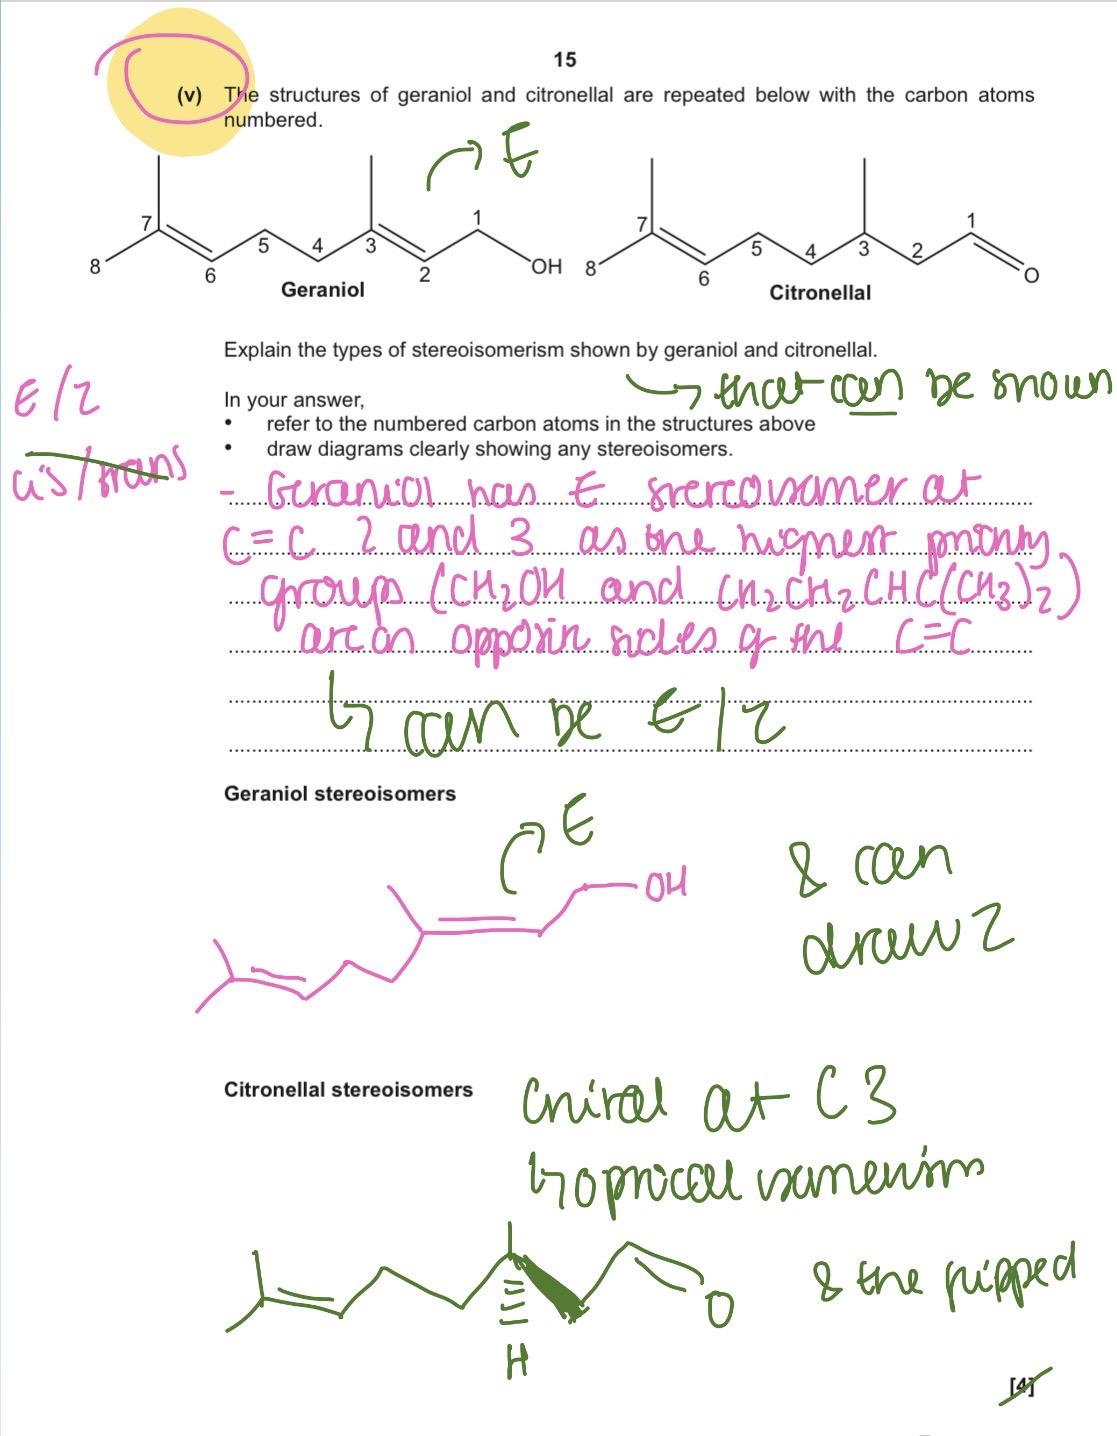 15
(v) The structures of geraniol and citronellal are repeated below with the carbon atoms
numbered.
E
7
8
6
5
4
3
2
1
OH
Geraniol
7
8
6
5
4
3
2
1
O
Citronellal
Explain the types of stereoisomerism shown by geraniol and citronellal.
↳ that can be shown
E/Z
cis/trans
In your answer,
• refer to the numbered carbon atoms in the structures above
• draw diagrams clearly showing any stereoisomers.
- Geraniol has E stereoisomer at
C=C 2 and 3 as the highest priority
groups (CH2OH and CH2CH2CHC(CH3)2)
are on opposite sides of the C=C
↳ can be E/Z
Geraniol stereoisomers
E
OH
& can
draw Z
Citronellal stereoisomers
Chiral at C3
↳ optical isomerism
H
O
& the flipped
[4]